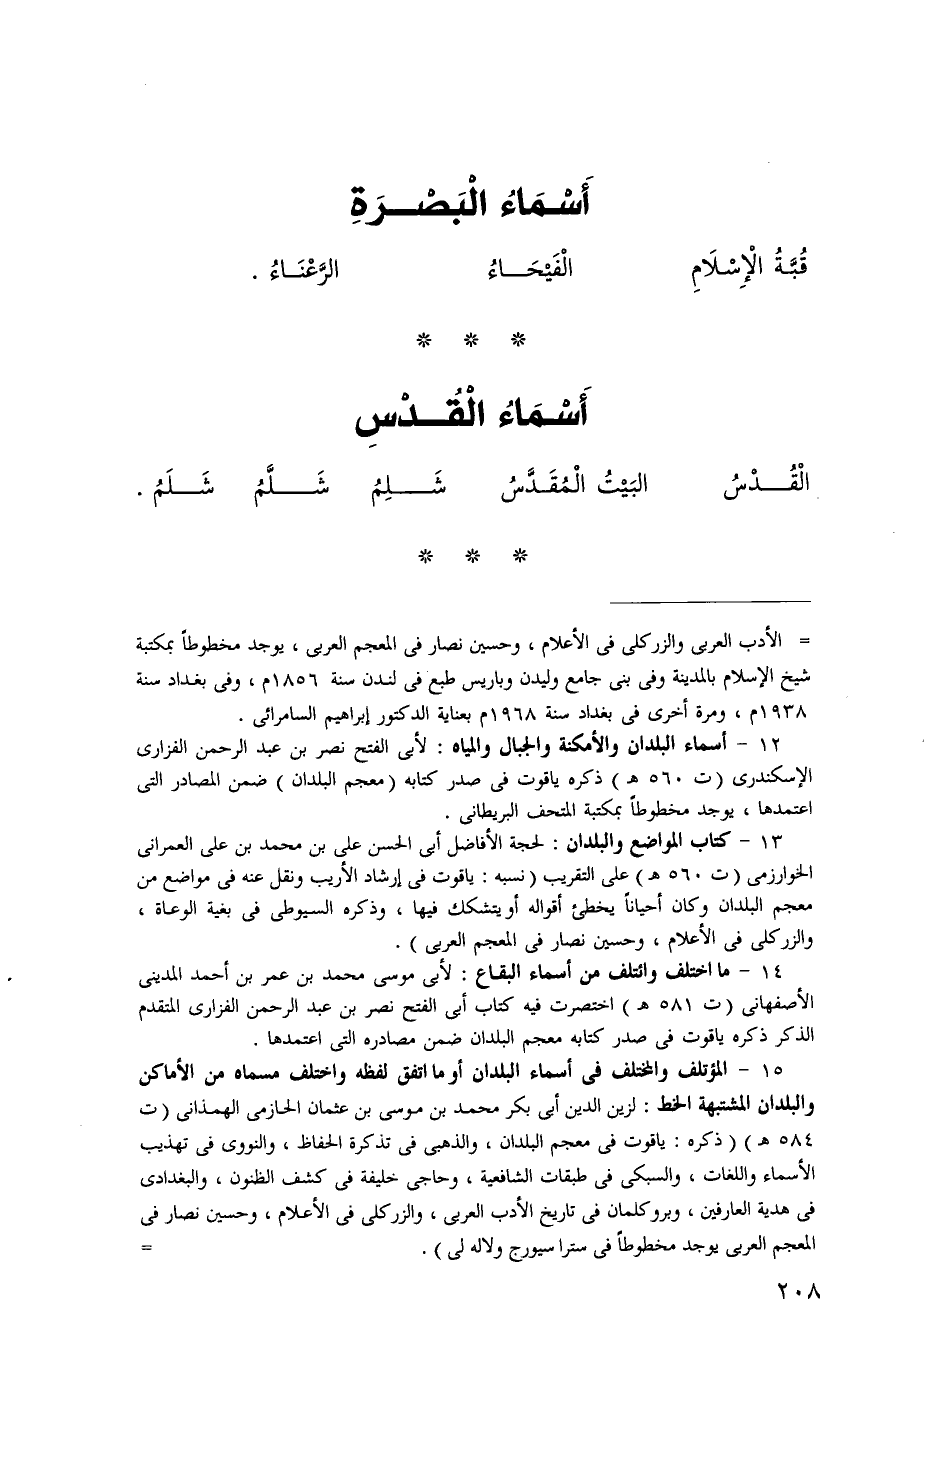 أَسْمَاءُ الْبَصْرَةِ
قُبَّةُ الْإِسْلَامِ الْفَيْحَاءُ الرَّعْنَاءُ .
* * *
أَسْمَاءُ الْقُدْسِ
الْقُدْسُ البَيْتُ الْمُقَدَّسُ شَلِمُ شَلَّمُ شَلَمُ .
* * *
= الأدب العربى والزركلى فى الأعلام ، وحسين نصار فى المعجم العربى ، يوجد مخطوطاً بمكتبة
شيخ الإسلام بالمدينة وفى بنى جامع وليدن وباريس طبع فى لندن سنة ١٨٥٦م ، وفى بغداد سنة
١٩٣٨م ، ومرة أخرى فى بغداد سنة ١٩٦٨م بعناية الدكتور إبراهيم السامرائى .
١٢ - أسماء البلدان والأمكنة والجبال والمياه : لأبى الفتح نصر بن عبد الرحمن الفزارى
الإسكندرى (ت ٥٦٠ هـ) ذكره ياقوت فى صدر كتابه (معجم البلدان ) ضمن المصادر التى
اعتمدها ، يوجد مخطوطاً بمكتبة المتحف البريطانى .
١٣ - كتاب المواضع والبلدان : لحجة الأفاضل أبى الحسن على بن محمد بن على العمرانى
الخوارزمى (ت ٥٦٠ هـ) على التقريب (نسبه : ياقوت فى إرشاد الأريب ونقل عنه فى مواضع من
معجم البلدان وكان أحياناً يخطئ أقواله أو يتشكك فيها ، وذكره السيوطى فى بغية الوعاة ،
والزركلى فى الأعلام ، وحسين نصار فى المعجم العربى ) .
١٤ - ما اختلف وائتلف من أسماء البقاع : لأبى موسى محمد بن عمر بن أحمد المدينى
الأصفهانى (ت ٥٨١ هـ) اختصرت فيه كتاب أبى الفتح نصر بن عبد الرحمن الفزارى المتقدم
الذكر ذكره ياقوت فى صدر كتابه معجم البلدان ضمن مصادره التى اعتمدها .
١٥ - المؤتلف والمختلف فى أسماء البلدان أو ما اتفق لفظه واختلف مسماه من الأماكن
والبلدان المشتبهة الخط : لزين الدين أبى بكر محمد بن موسى بن عثمان الحازمى الهمذانى (ت
٥٨٤ هـ) (ذكره : ياقوت فى معجم البلدان ، والذهبى فى تذكرة الحفاظ ، والنووى فى تهذيب
الأسماء واللغات ، والسبكى فى طبقات الشافعية ، وحاجى خليفة فى كشف الظنون ، والبغدادى
فى هدية العارفين ، وبروكلمان فى تاريخ الأدب العربى ، والزركلى فى الأعلام ، وحسين نصار فى
المعجم العربى يوجد مخطوطاً فى سترا سيورج ولاله لى ) . =
٢٠٨